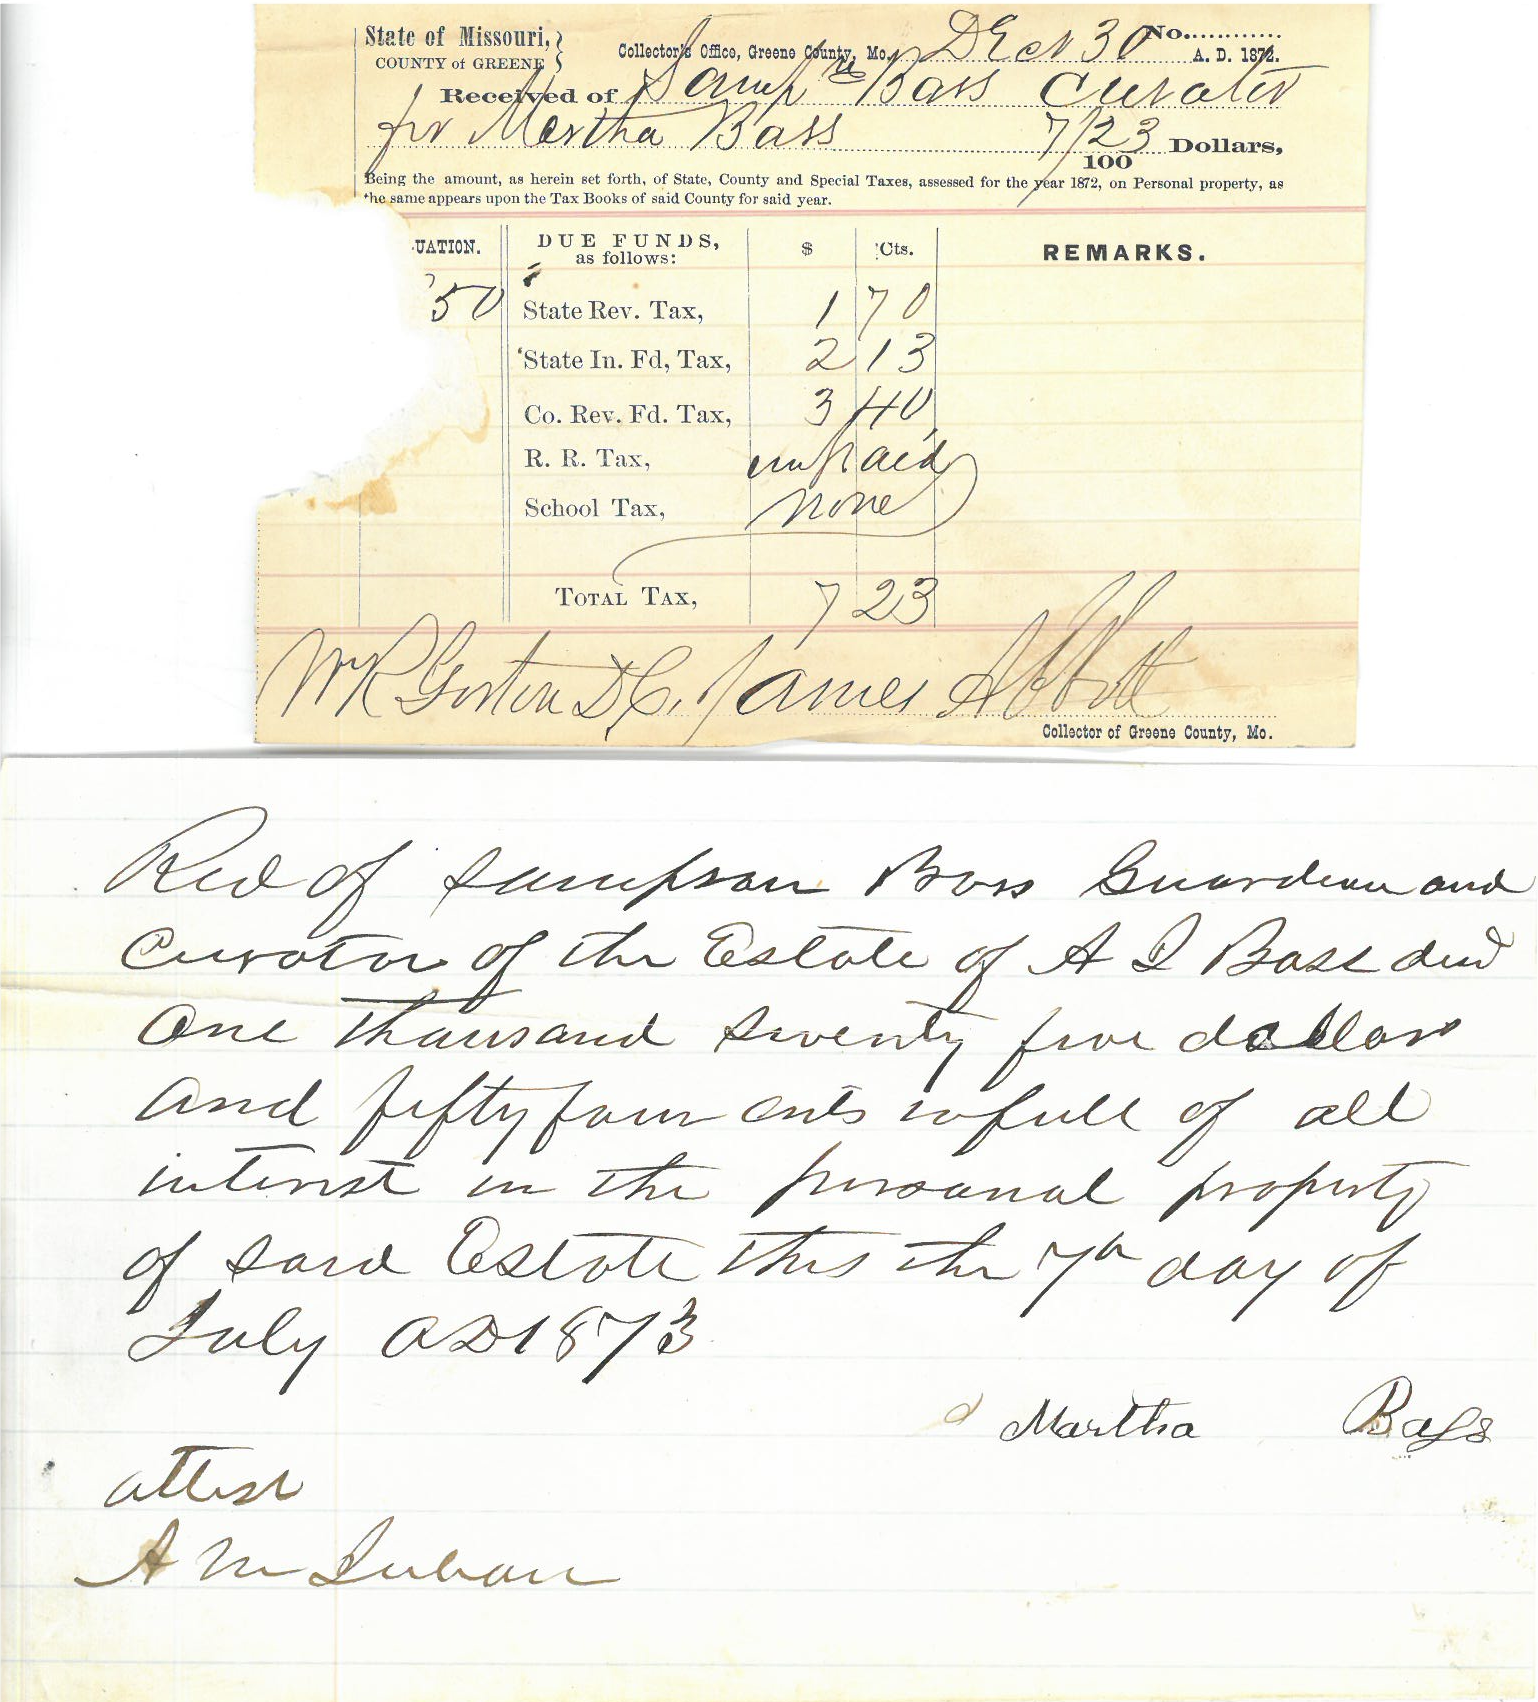 State of Missouri,
COUNTY of GREENE
No............
Collector's Office, Greene County, Mo. Dec 30 A. D. 1872.
Received of Samp Bass Curator
for Martha Bass 7/23/100 Dollars,
Being the amount, as herein set forth, of State, County and Special Taxes, assessed for the year 1872, on Personal property, as
the same appears upon the Tax Books of said County for said year.
UATION. DUE FUNDS, as follows: $ Cts. REMARKS.
50 State Rev. Tax, 1 70
State In. Fd, Tax, 2 13
Co. Rev. Fd. Tax, 3 40
R. R. Tax, unpaid
School Tax, none
TOTAL TAX, 7 23
Wm R Gorton D C. James Abbott
Collector of Greene County, Mo.
Recd of Sampson Bass Guardian and
Curator of the Estate of A I Bass decd
One thousand seventy five dollars
and fifty four cnts in full of all
interest in the personal property
of said Estate this the 7th day of
July AD 1873
Martha Bass
attest
A M Julian